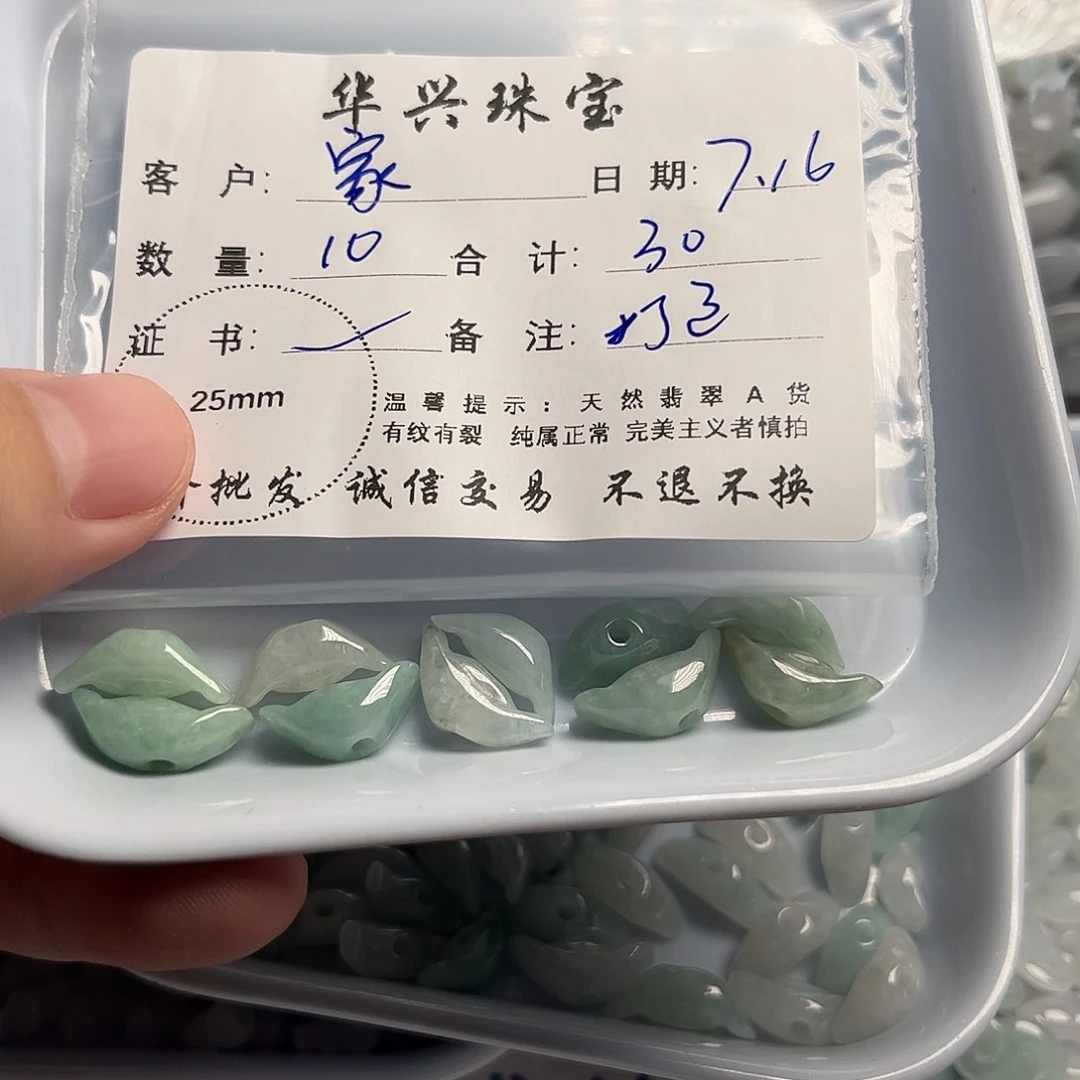 华兴珠宝
客 户: 家 日 期: 7.16
数 量: 10 合 计: 30
证 书: 备 注: 好色
25mm 温馨提示: 天然翡翠A货
有纹有裂 纯属正常 完美主义者慎拍
批发 诚信交易 不退不换